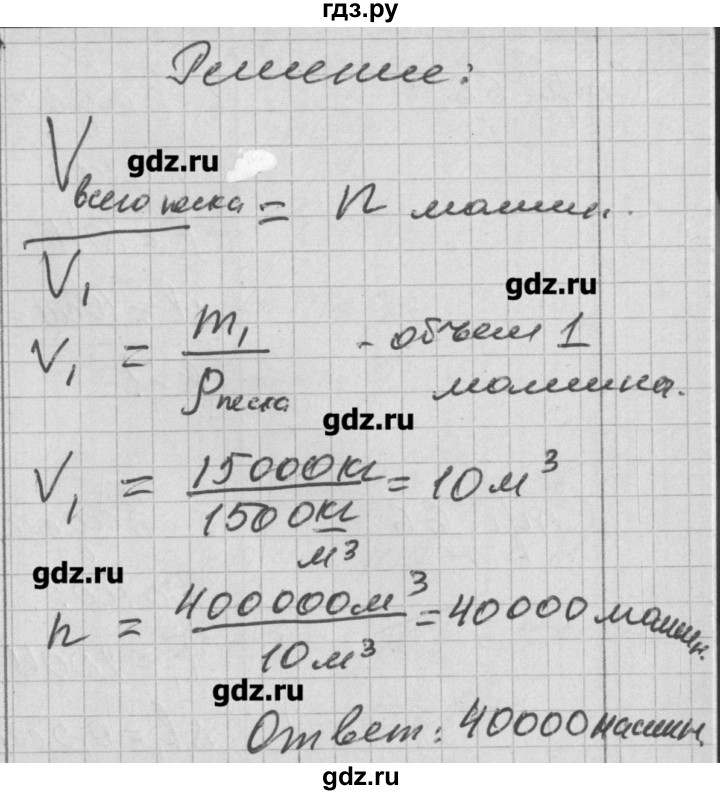 гдз.ру
Решение:
V всего песка / V₁ = n машин.
gdz.ru
gdz.ru
V₁ = m₁ / ρ песка - объем 1 машина.
gdz.ru
V₁ = 15000 кг / 1500 кг/м³ = 10 м³
gdz.ru
n = 400000 м³ / 10 м³ = 40000 машин.
gdz.ru
Ответ: 40000 машины
gdz.ru